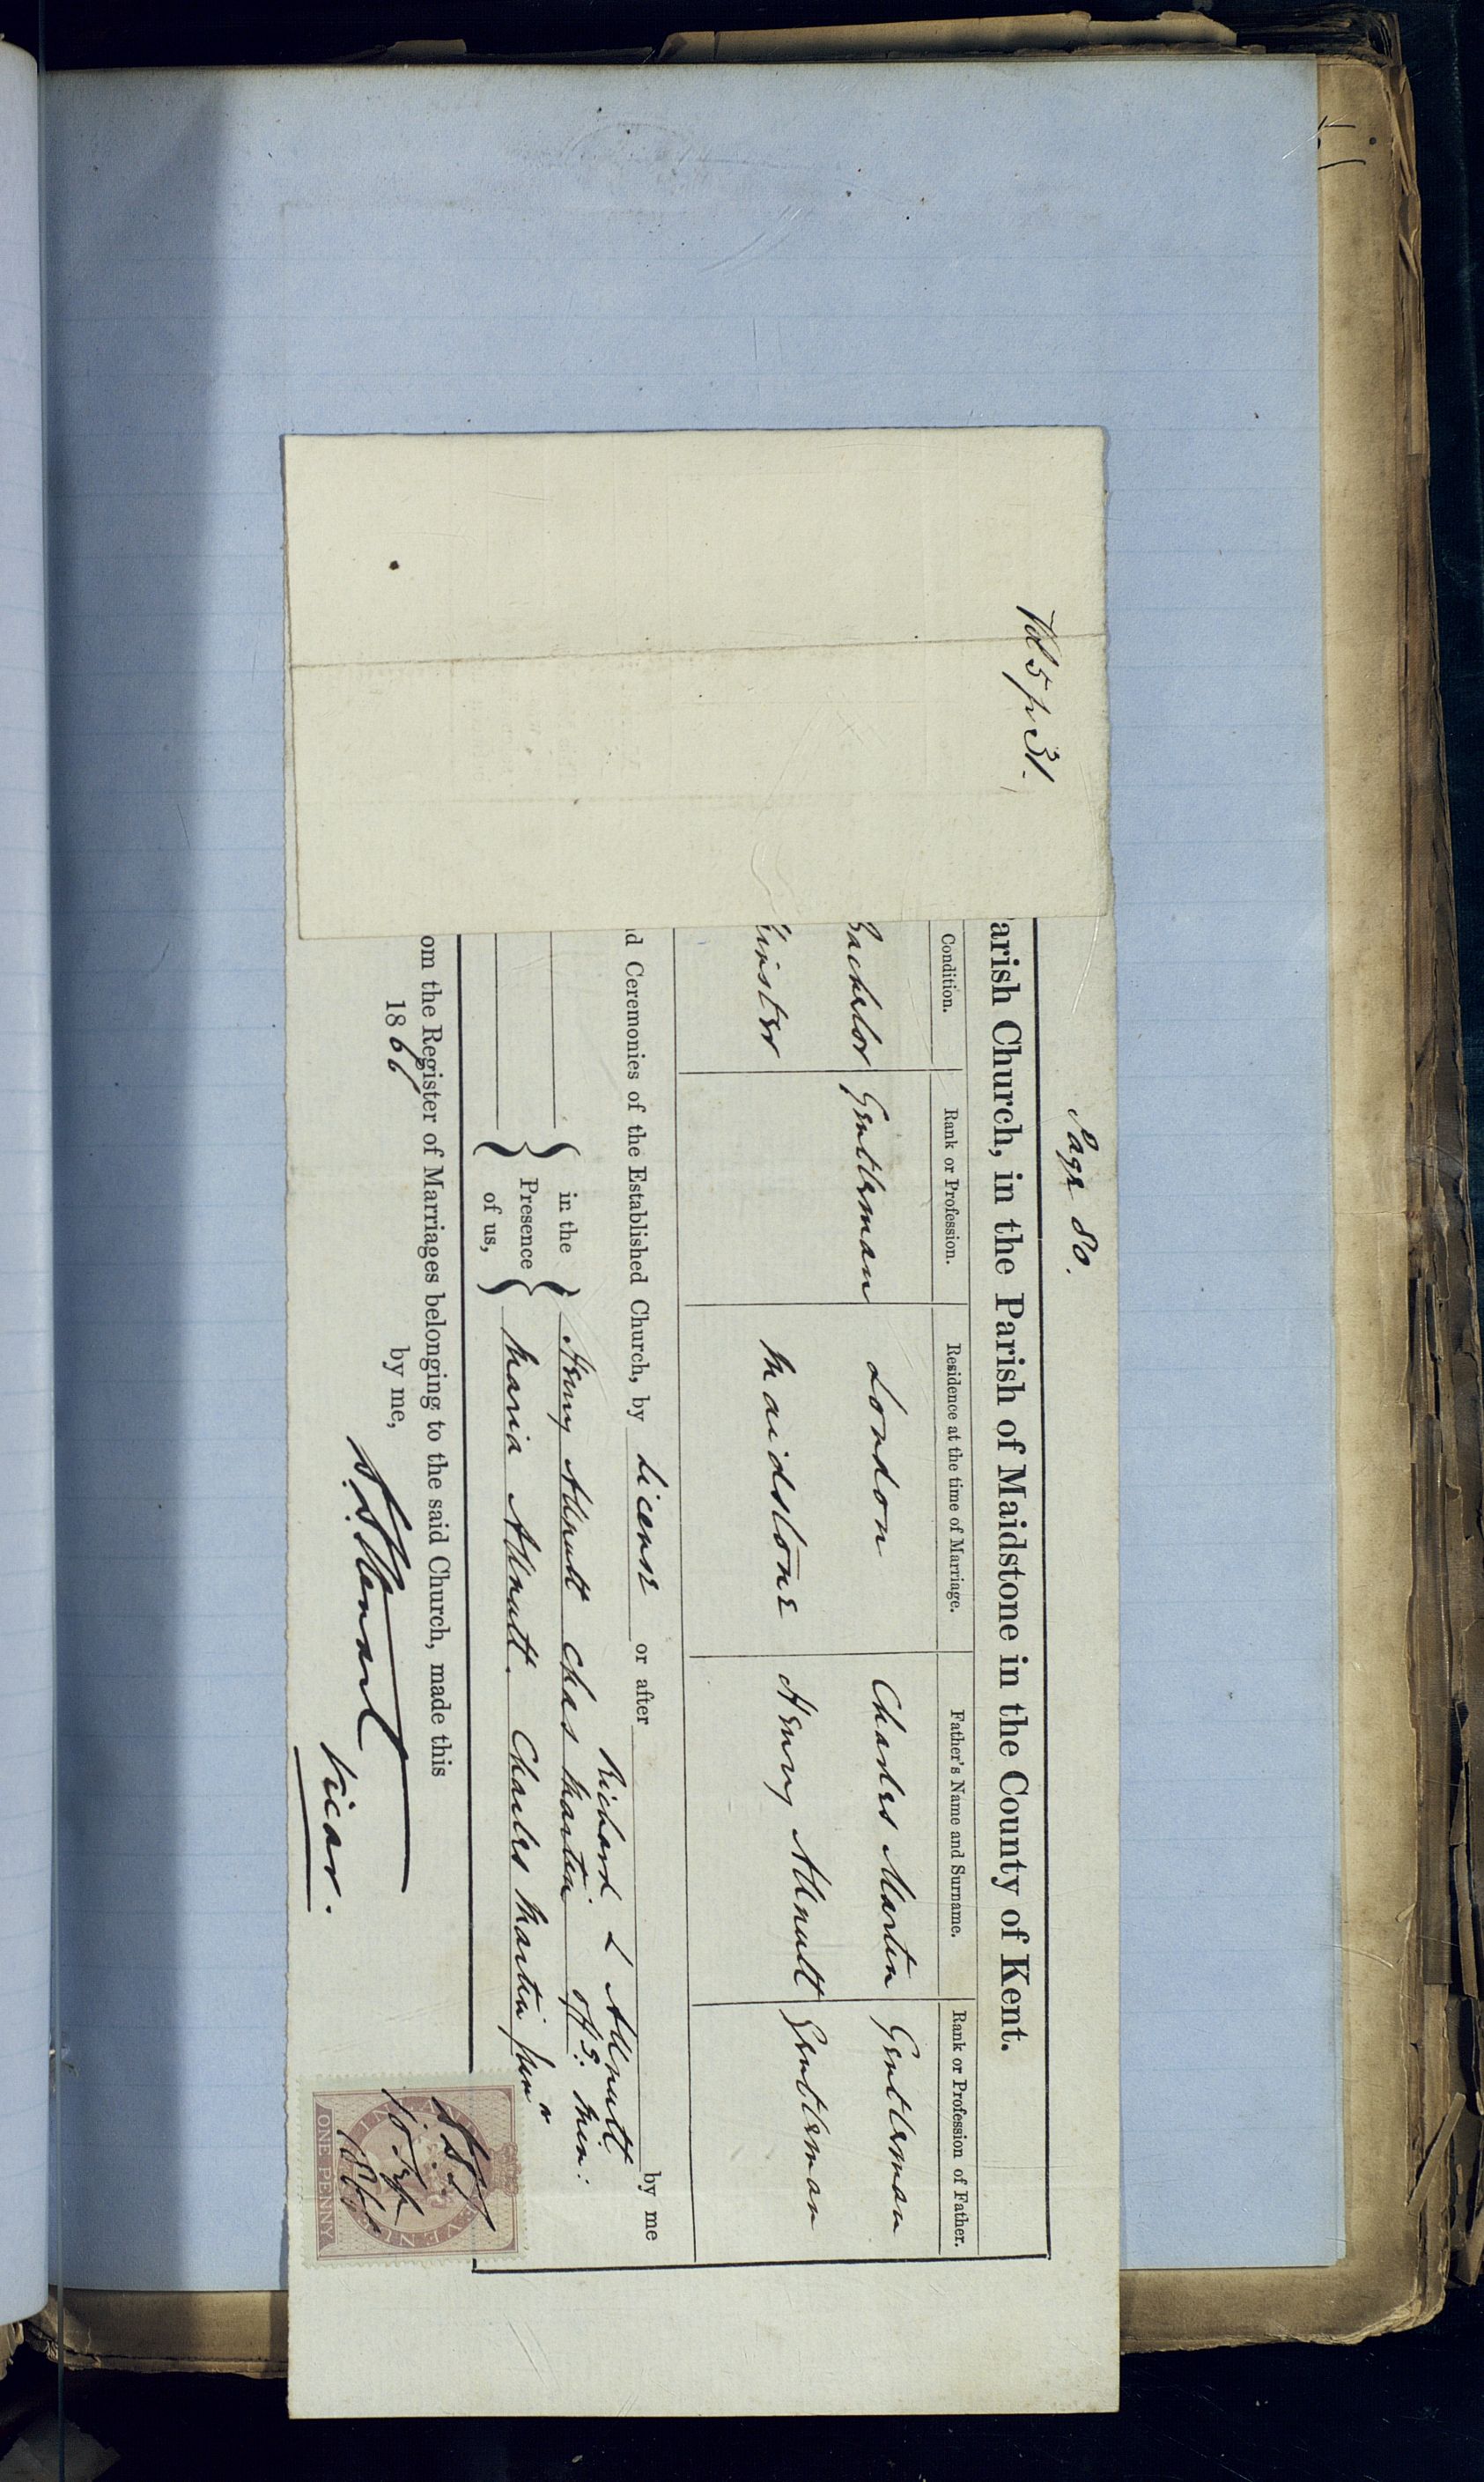 Vol 5 p 31.
Page 80.
arish Church, in the Parish of Maidstone in the County of Kent.
Condition. Rank or Profession. Residence at the time of Marriage. Father's Name and Surname. Rank or Profession of Father.
Bachelor Gentleman London Charles Martin Gentleman
Spinster Maidstone Henry Allnutt Gentleman
d Ceremonies of the Established Church, by Licence or after by me
Richard L Allnutt
in the Presence of us,
Henry Allnutt Chas Martin
Maria Allnutt. Charles Martin Junr
om the Register of Marriages belonging to the said Church, made this
1866 by me,
Vicar.
1866
ONE PENNY